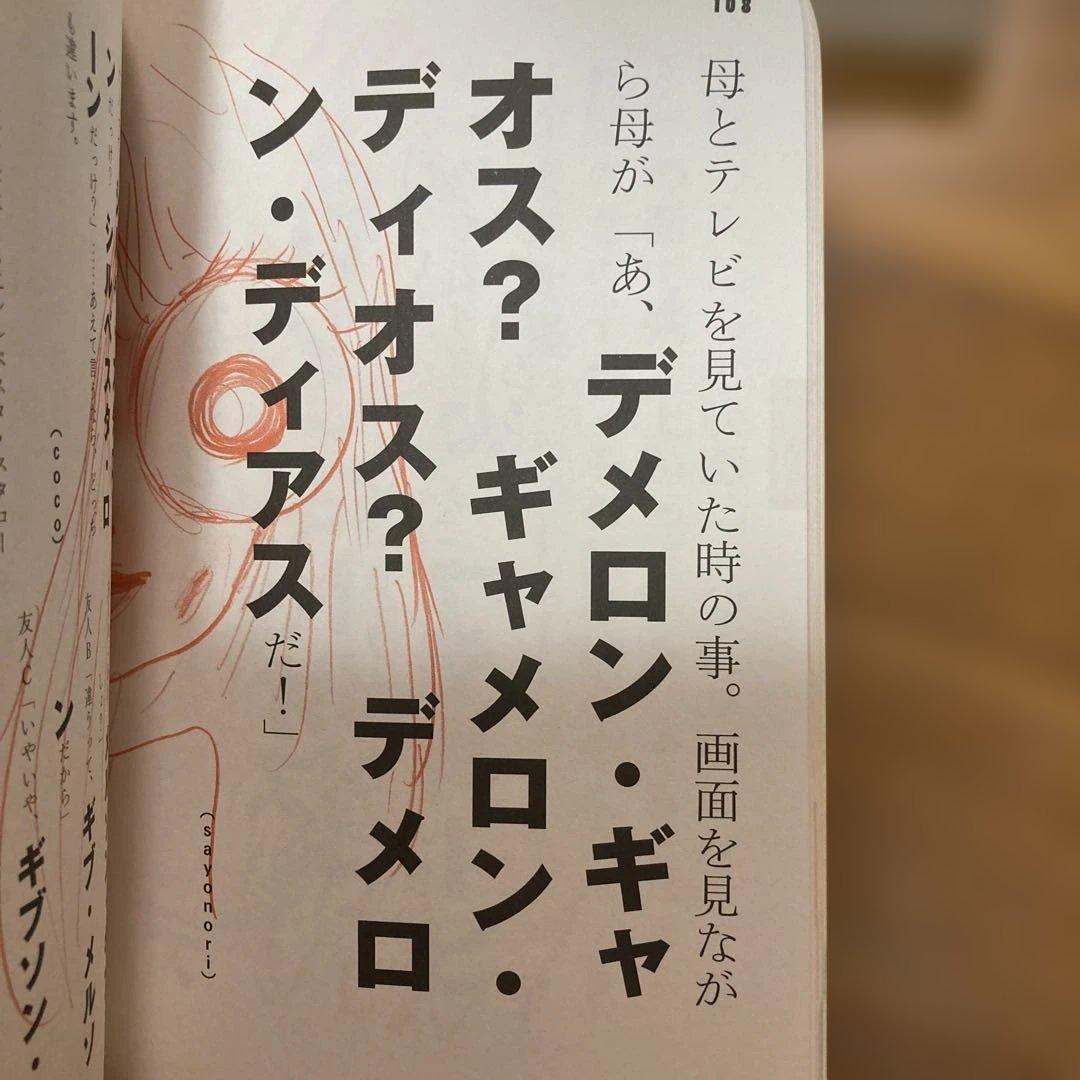 108
母とテレビを見ていた時の事。画面を見なが
ら母が「あ、デメロン・ギャ
オス? ギャメロン・
ディオス? デメロ
ン・ディアスだ!」
(sayonori)
シルベスタ・ロ
ーンだっけ?」……あえて言うなら、どっち
も違います。
(coco)
友人B「違うって、ギブ・メルソ
ンだから」
友人C「いやいや、ギブソン・